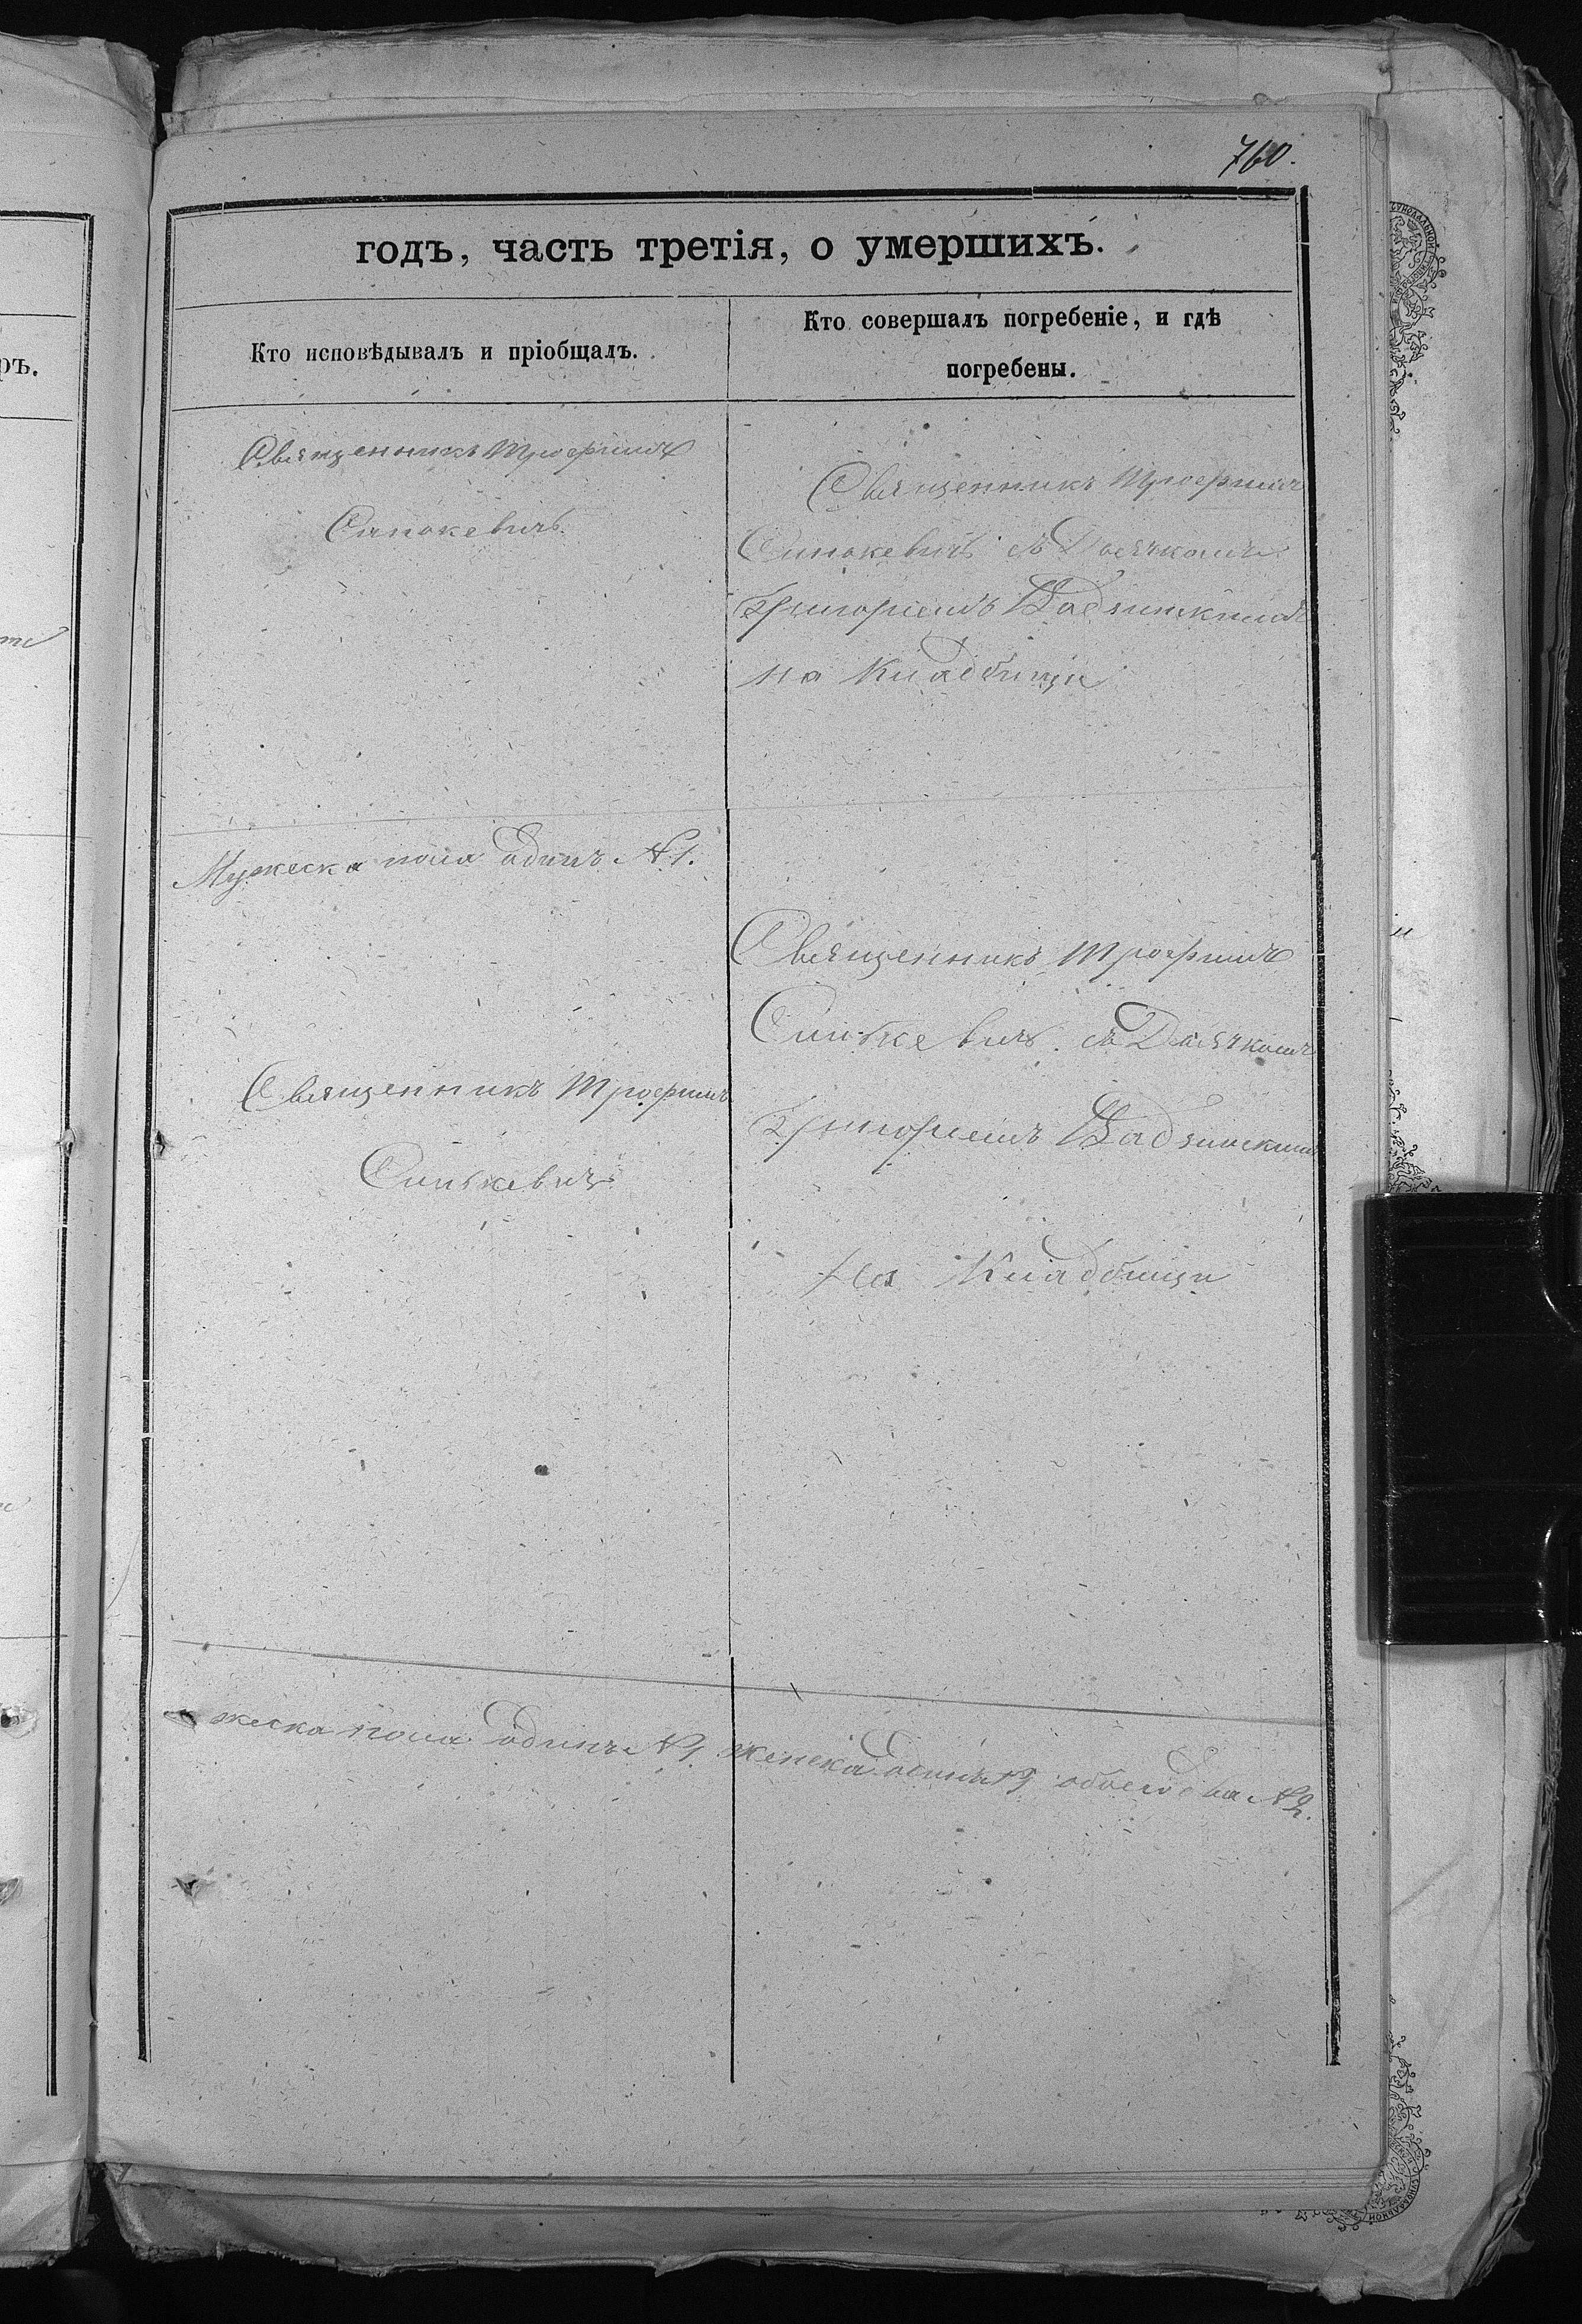 760.
годъ, часть третія, о умершихъ.
Кто исповѣдывалъ и пріобщалъ.
Кто совершалъ погребеніе, и гдѣ
погребены.
ръ.
Священникъ Трофимъ
Синькевичъ.
Священникъ Трофимъ
Синькевичъ съ Дьячкомъ
Григоріемъ
на Кладбищи
Мужеска пола одинъ №1.
Священникъ Трофимъ
Синькевичъ съ Дьячкомъ
Григоріемъ
Священникъ Трофимъ
Синькевичъ
На Кладбищи
жеска пола одинъ №1. женска одинъ обоего два №2.